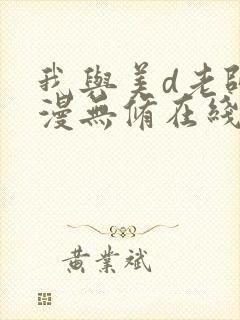 我與美d老師
漫無脩在綫
黃業斌